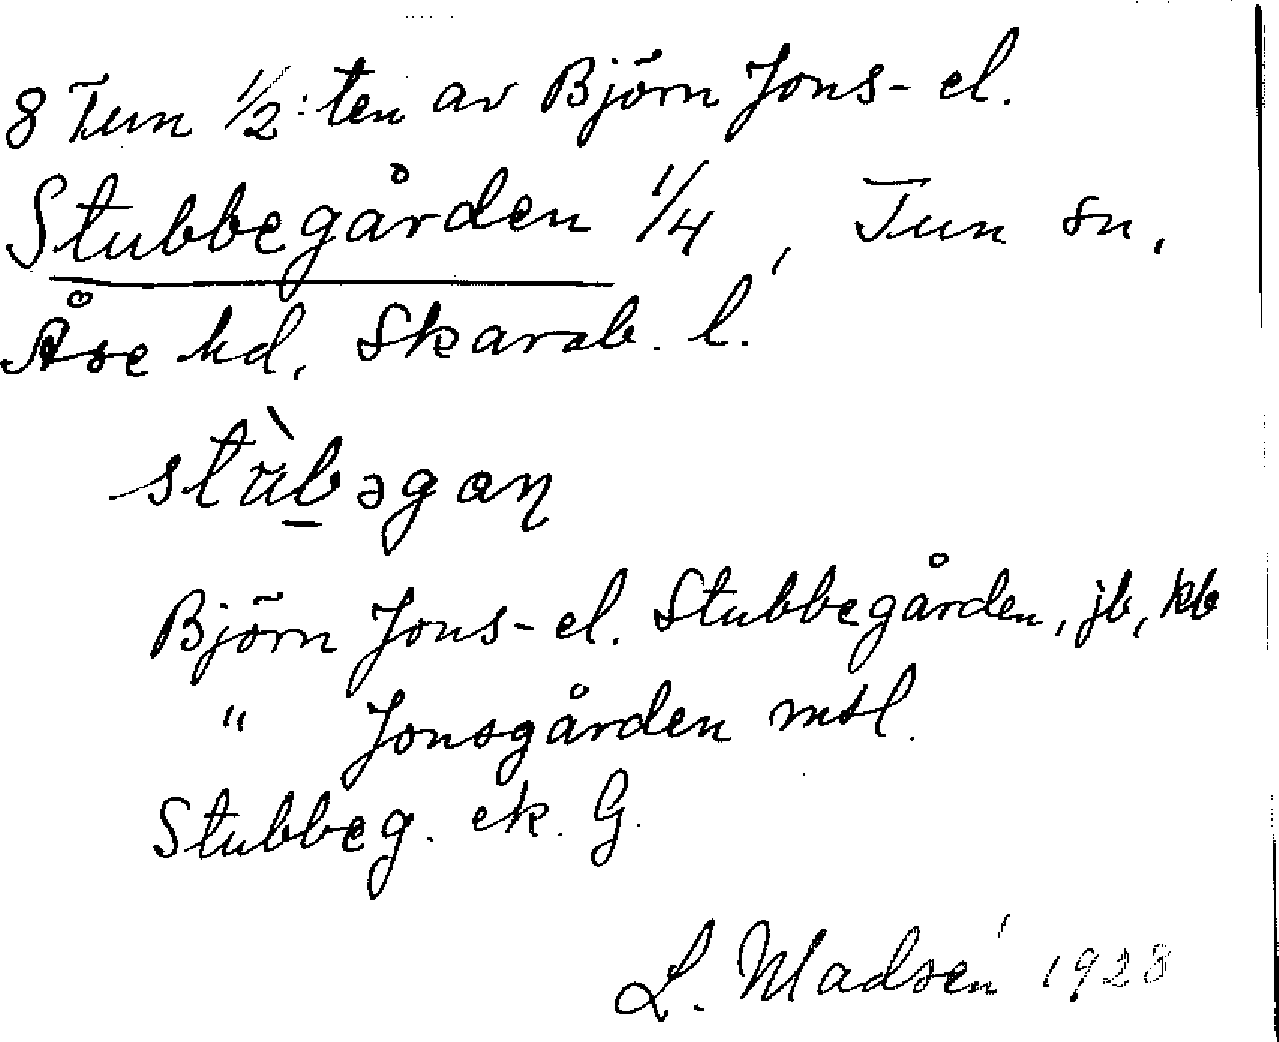 8 Tun 1/2:ten av Björn Jons- el.
Stubbegården 1/4, Tun sn,
Åse hd, Skarab. l.
stàb̲əgan
Björn Jons- el. Stubbegården, jb, kb
" Jonsgården mtl.
Stubbeg. ek. G.
L. Madsén 1928